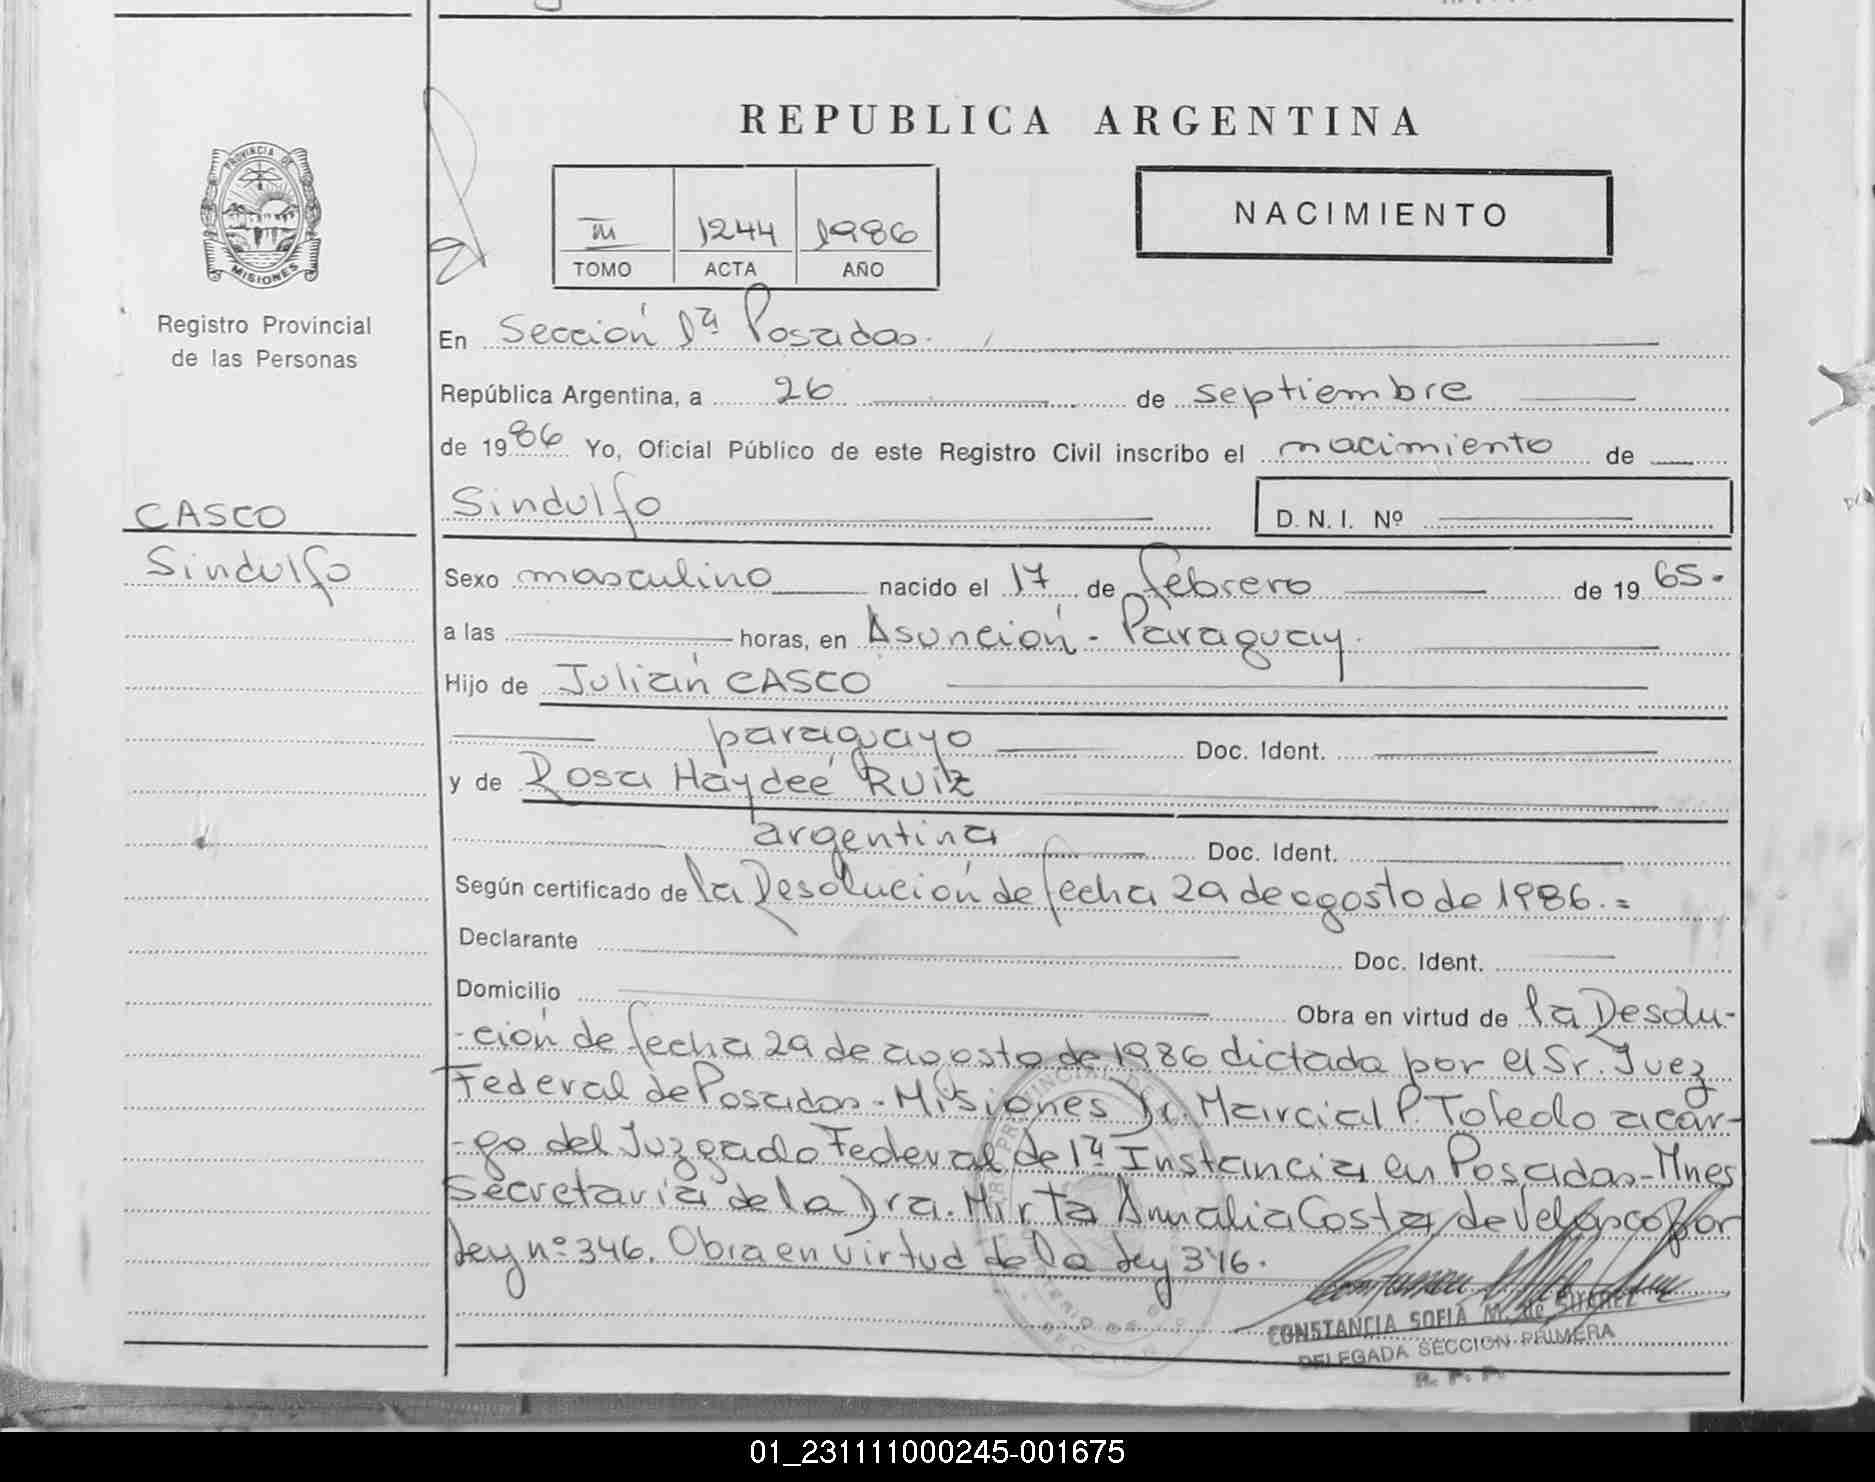 REPUBLICA ARGENTINA
PROVINCIA DE
MISIONES
Registro Provincial
de las Personas
NACIMIENTO
III 1244 1986
TOMO ACTA AÑO
En Sección 1ª Posadas.
República Argentina, a 26 de septiembre
de 1986 Yo, Oficial Público de este Registro Civil inscribo el nacimiento de
CASCO
Sindulfo
Sindulfo D.N.I. Nº
Sexo masculino nacido el 17 de febrero de 1965.
a las horas, en Asunción - Paraguay.
Hijo de Julián CASCO
paraguayo Doc. Ident.
y de Rosa Haydeé RUIZ
argentina Doc. Ident.
Según certificado de la Resolución de fecha 29 de agosto de 1986.=
Declarante Doc. Ident.
Domicilio Obra en virtud de la Resolu-
-ción de fecha 29 de agosto de 1986 dictada por el Sr. Juez
Federal de Posadas - Misiones Dr. Marcial P. Toledo a car-
-go del Juzgado Federal de 1ª Instancia en Posadas - Mnes
Secretaria de la Dra. Mirta Amalia Costa de Velasco por
Ley nº 346. Obra en virtud de la Ley 346.
CONSTANCIA SOFIA M. de SUAREZ
DELEGADA SECCION PRIMERA
R. P. P.
01_231111000245-001675